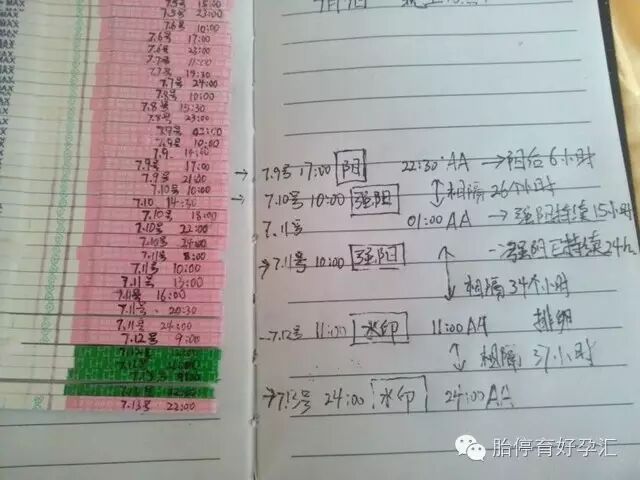 7.5号 23:00
7.6号 10:00
7.6号 17:00
7.6号 23:00
7.7号 11:00
7.7号 19:30
7.7号 24:00
7.8号 10:00
7.8号 15:30
7.8号 23:00
7.9号 10:00
7.9号 17:00
7.9号 21:00
7.10号 10:00
7.10 14:30
7.10号 18:00
7.10号 22:00
7.10号 24:00
7.11号 8:00
7.11号 10:00
7.11号 13:00
7.11号 16:00
7.11号 20:30
7.11号 24:00
7.12号 9:00
7.13号 22:00
7.9号 17:00 阳 22:30 AA →阳后6小时
→ 7.10号 10:00 强阳 ↕相隔26个小时
7.11号 01:00 AA →强阳持续15小时
→7.11号 10:00 强阳 强阳已持续24h
相隔34个小时
7.12号 11:00 水印 11:00AA 排卵
相隔37小时
→7.13号 24:00 水印 24:00AA
胎停育好孕汇